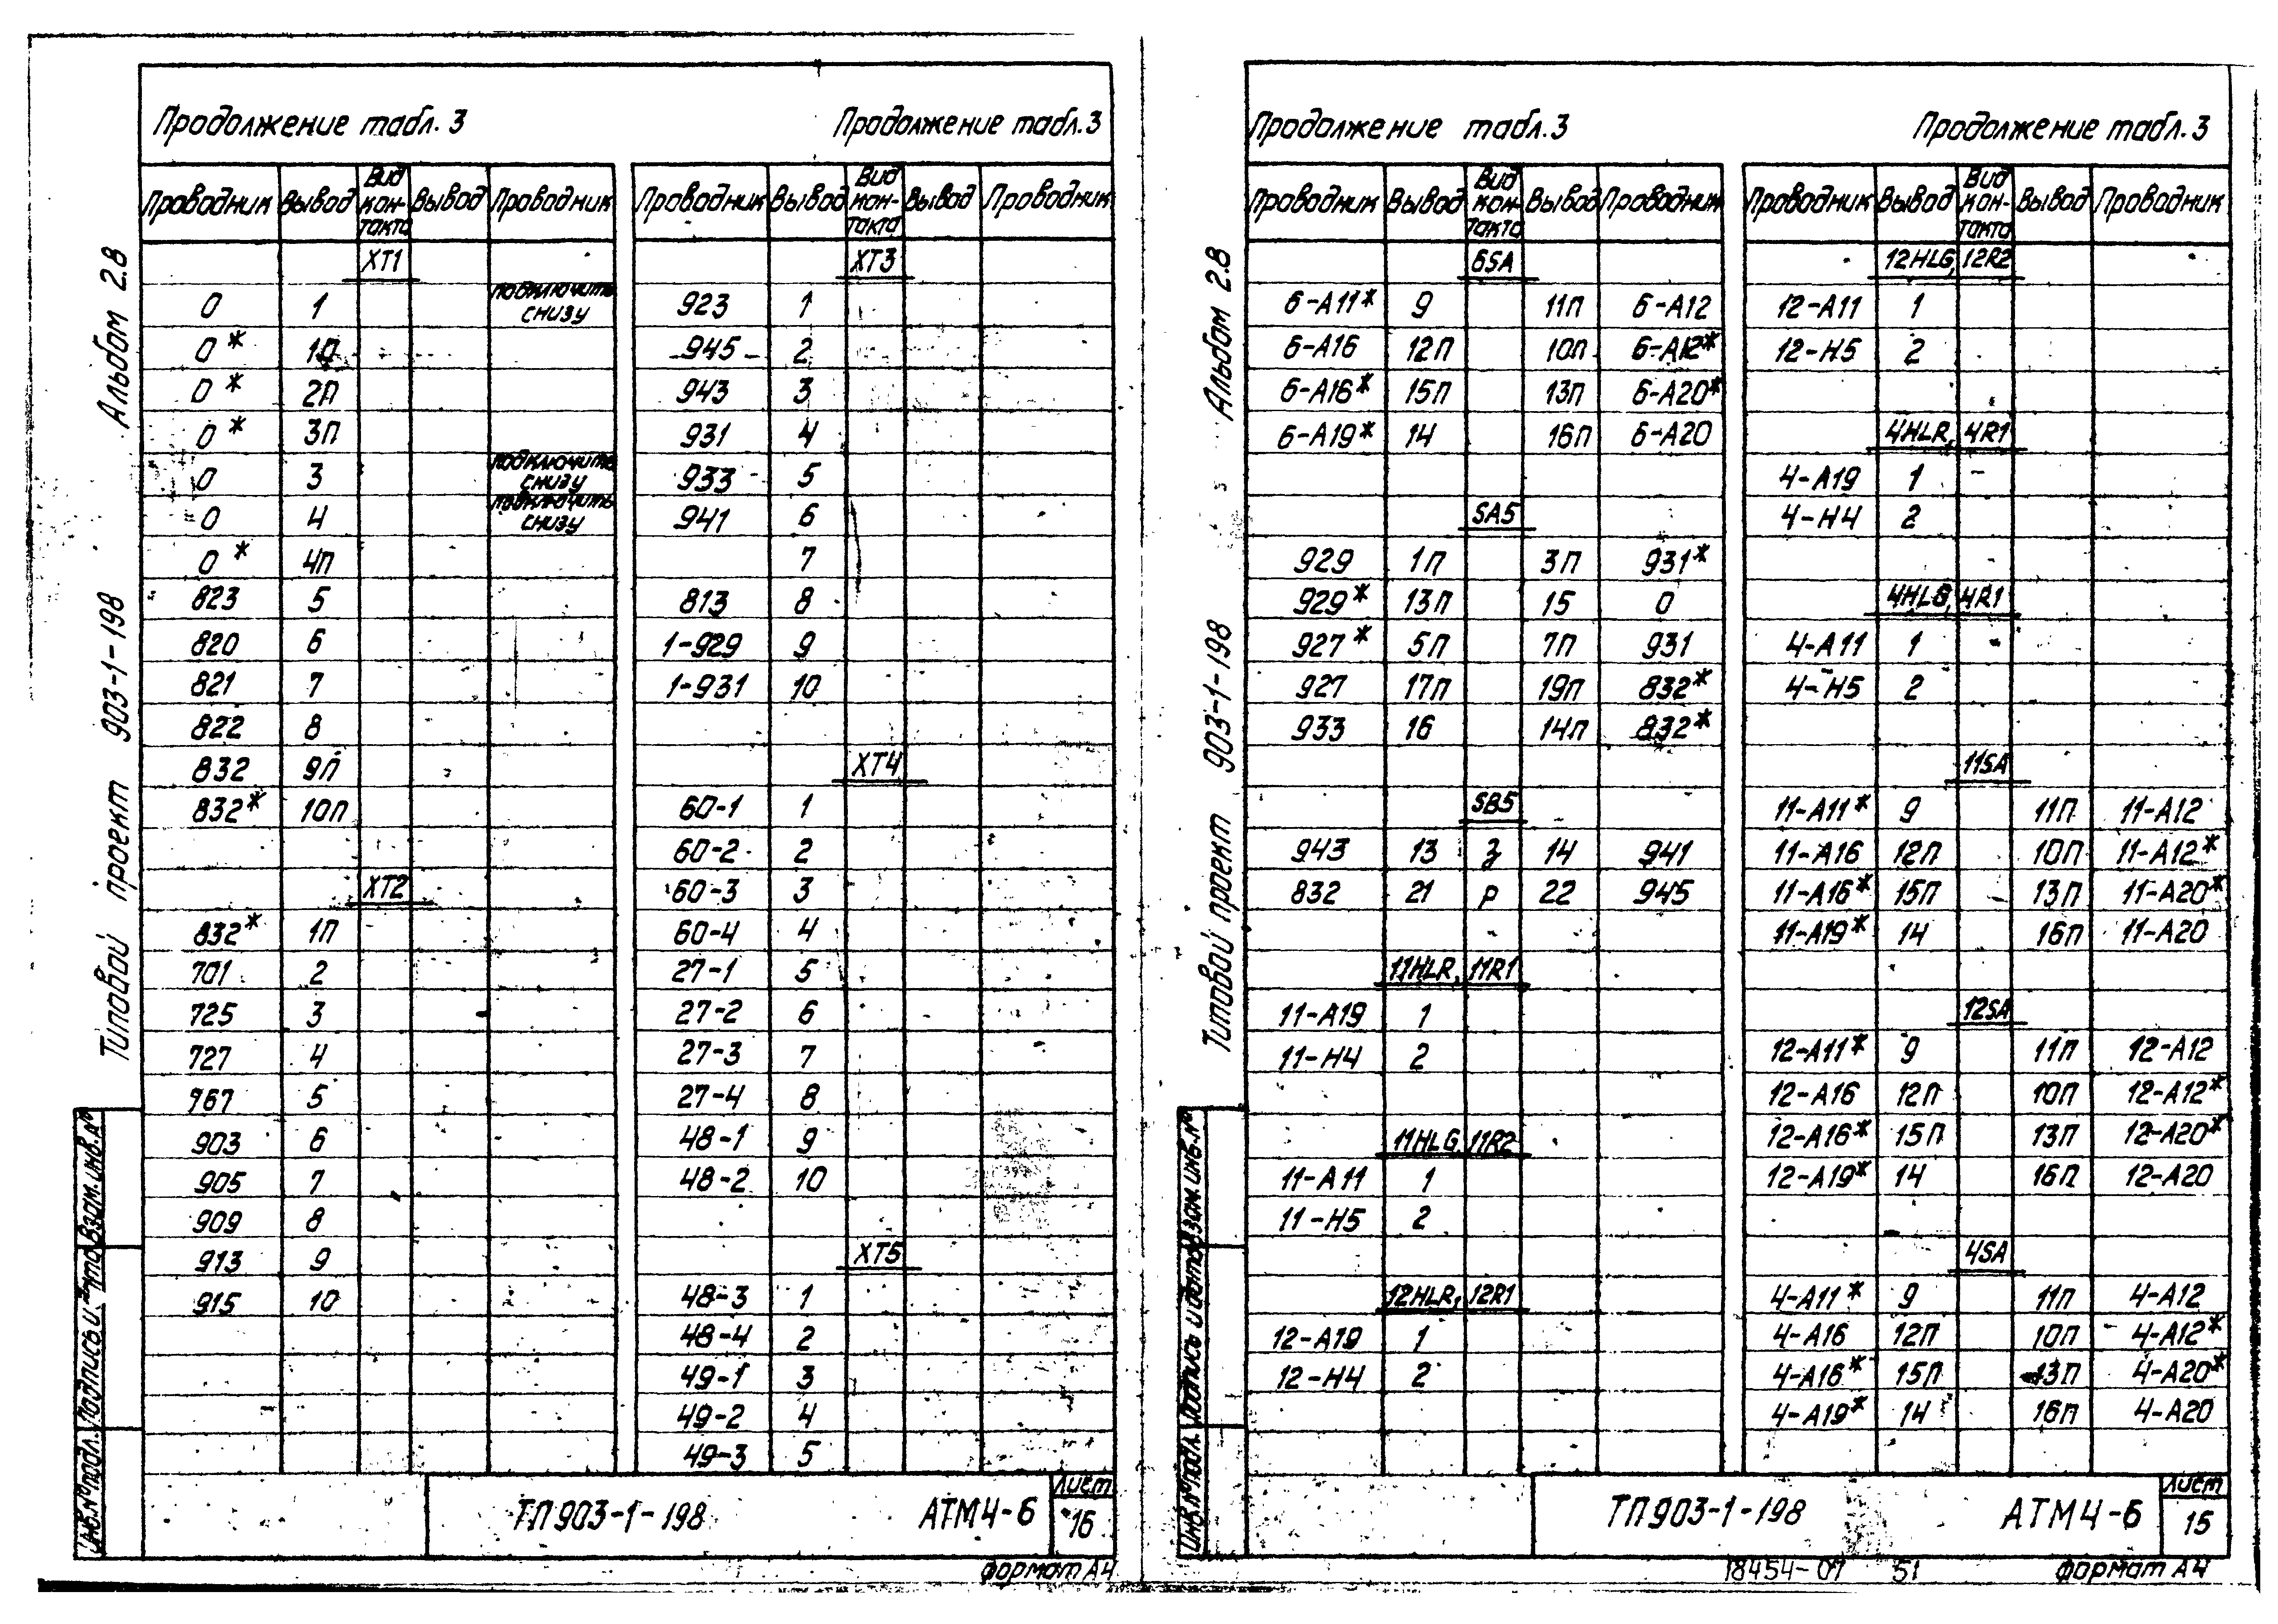 Продолжение табл. 3
Продолжение табл. 3
Проводник Вывод Вид контакта Вывод Проводник
Проводник Вывод Вид контакта Вывод Проводник
XT1
0 1 подключить снизу
0* 1П
0* 2П
0* 3П
0 3 подключить снизу
0 4 подключить снизу
0* 4П
823 5
820 6
821 7
822 8
832 9П
832* 10П
XT2
832* 1П
701 2
725 3
727 4
767 5
903 6
905 7
909 8
913 9
915 10
XT3
923 1
945 2
943 3
931 4
933 5
941 6
7
813 8
1-929 9
1-931 10
XT4
60-1 1
60-2 2
60-3 3
60-4 4
27-1 5
27-2 6
27-3 7
27-4 8
48-1 9
48-2 10
XT5
48-3 1
48-4 2
49-1 3
49-2 4
49-3 5
ТП903-1-198 АТМ4-6 Лист 16
Формат А4
Альбом 2.8
Типовой проект 903-1-198
Взам.инв.№
Подпись и дата
Инв.№подл.
Продолжение табл.3
Продолжение табл.3
Проводник Вывод Вид контакта Вывод Проводник
Проводник Вывод Вид контакта Вывод Проводник
6SA
6-А11* 9 11П 6-А12
6-А16 12П 10П 6-А12*
6-А16* 15П 13П 6-А20*
6-А19* 14 16П 6-А20
SA5
929 1П 3П 931*
929* 13П 15 0
927* 5П 7П 931
927 17П 19П 832*
933 16 14П 832*
SB5
943 13 З 14 941
832 21 р 22 945
11HLR, 11R1
11-А19 1
11-Н4 2
11HLG, 11R2
11-А11 1
11-Н5 2
12HLR, 12R1
12-А19 1
12-Н4 2
12HLG, 12R2
12-А11 1
12-Н5 2
4HLR, 4R1
4-А19 1
4-Н4 2
4HLG, 4R1
4-А11 1
4-Н5 2
11SA
11-А11* 9 11П 11-А12
11-А16 12П 10П 11-А12*
11-А16* 15П 13П 11-А20*
11-А19* 14 16П 11-А20
12SA
12-А11* 9 11П 12-А12
12-А16 12П 10П 12-А12*
12-А16* 15П 13П 12-А20*
12-А19* 14 16П 12-А20
4SA
4-А11* 9 11П 4-А12
4-А16 12П 10П 4-А12*
4-А16* 15П 13П 4-А20*
4-А19* 14 16П 4-А20
ТП903-1-198 АТМ4-6 Лист 15
18454-07 51 Формат А4
Альбом 2.8
Типовой проект 903-1-198
Взам.инв.№
Подпись и дата
Инв.№подл.